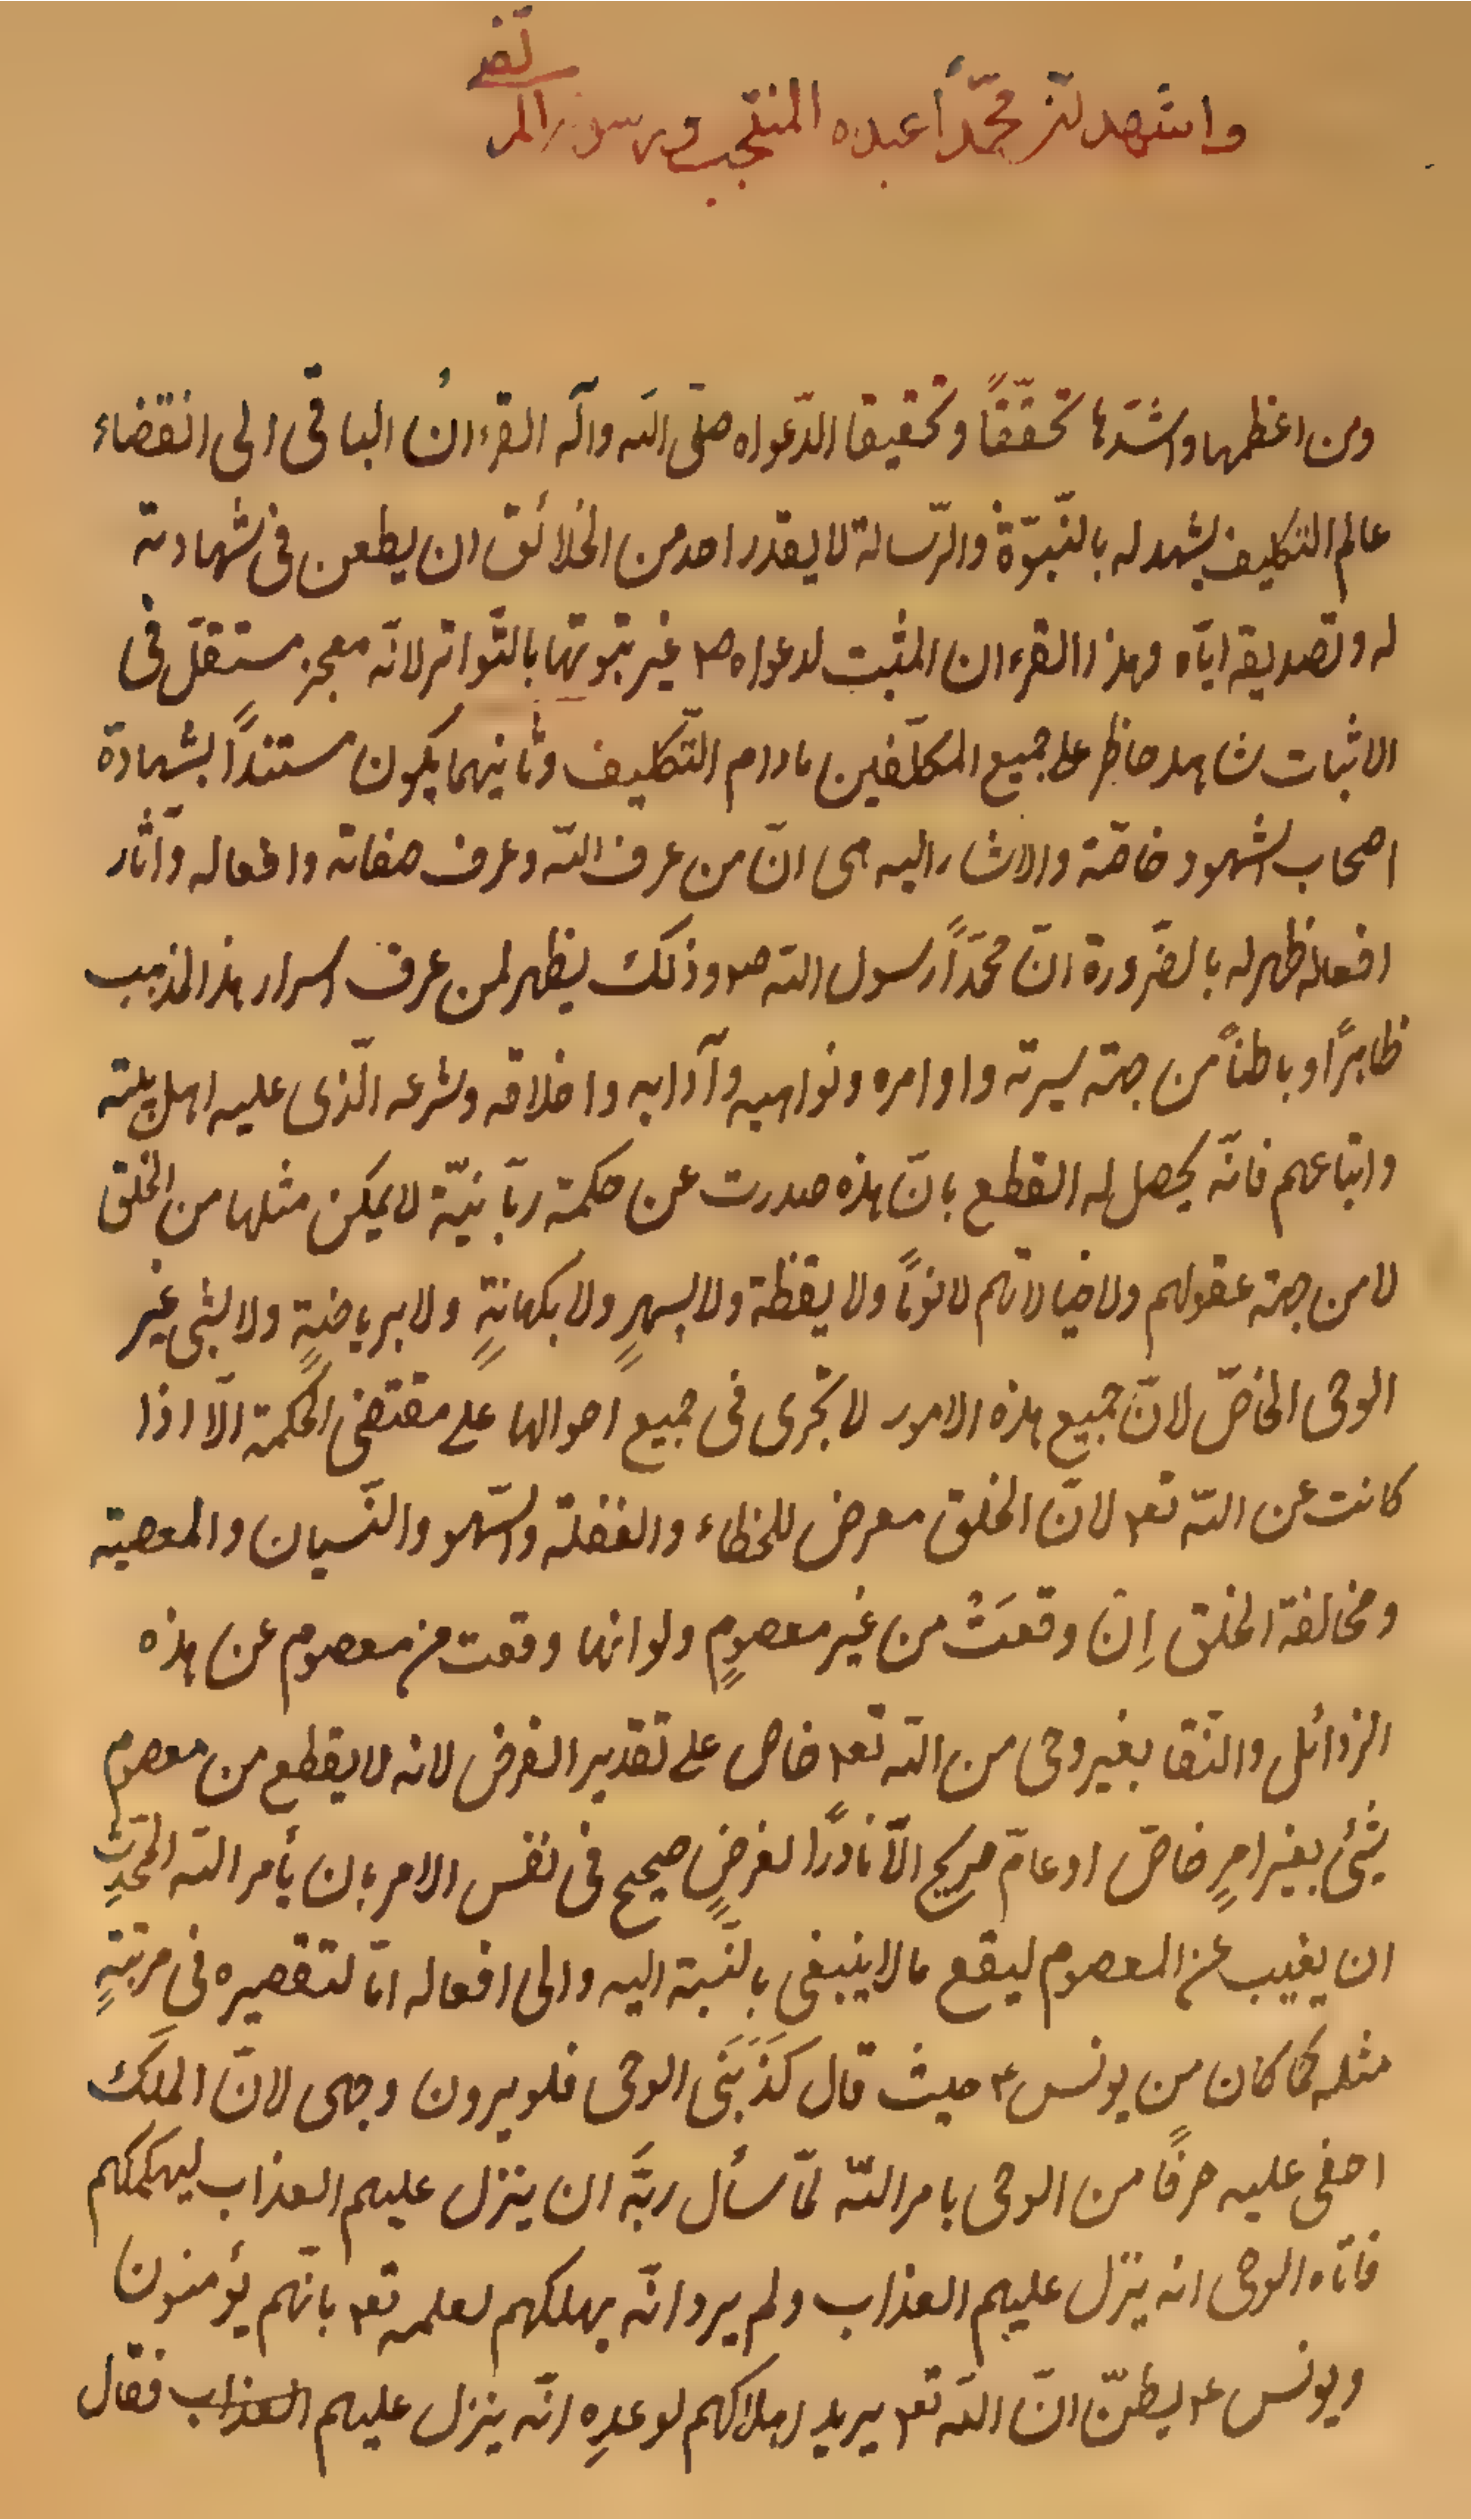 واشهد انّ محمّداً عبده المنتجب ورسوله المر
تضى
ومن اعظمها واشدّها تحقّقاً وتحقيقا لدّعواه صلّى الله وآله القرءانُ الباقى الى انقضاء
عالم التكليف يشهد له بالنّبوّة والرّسالة لا يقدر احد من الخلائق ان يطعن فى شهادته
له وتصديقه ايّاه وهذا القرءان المثبت لدعواه ص غير ثبوتها بالتّواتر لانّه معجز مستقلّ فى
الاثبات شاهد حاظر على جميع المكلّفين مادام التّكليف وثانيهما يكون مستنداً لشهادة
اصحاب الشهود خاصّة والاشار اليه هى انّ من عرف اللّه وعرف صفاته وافعاله وآثار
افعاله ظهر له بالضّرورة انّ محمّداً رسول اللّه ص وذلك يظهر لمن عرف اسرار هذا المذهب
ظاهرًا وباطناً من جهة سيرته واوامره ونواهيه وآدابه واخلاقه وشرعه الّذى عليه اهل بيته
واتباعهم فانّه يحصل له القطع بانّ هذه صدرت عن حكمة ربّانيّة لا يمكن مثلها من الخلق
لا من جهة عقولهم ولا خيالاتهم لا نومًا ولا يقظة ولا بسهرٍ ولا بكهانةٍ ولا برياضةٍ ولا بشئ غير
الوحى الخاصّ لانّ جميع هذه الامور لا تجرى فى جميع احوالها على مقتضى الحكمة الّا اذا
كانت عن اللّه تع لانّ الخلق معرض للخطاء والغفلة والسّهو والنّسيان والمعصية
ومخالفة الخلق اِن وقعَتْ من غير معصومٍ ولو انها وقعت من معصوم عن هذه
الرذائل والنّقا بغير وحى من اللّه تع خاص على تقدير الفرض لانه لا يقطع من معصوم
بشئ بغير امرٍ خاصّ او عامّ صريح الّا نادرًا لغرضٍ صحيح فى نفس الامر بان يأمر اللّه المحدِّث
ان يغيب عن المعصوم ليقع ما لا ينبغى بالنّسبة اليه والى افعاله امّا لتقصيره فى مرتبةٍ
مثله كما كان من يونس ع حيث قال كَذَبَنى الوحى فلو يرون وجهى لانّ الملَك
اخفى عليه حرفًا من الوحى بامر اللّه لمّا سأل ربَّه ان ينزل عليهم العذاب ليهلكهم
فاتاه الوحى انه ينزل عليهم العذاب ولم يرد انّه يهلكهم لعلمه تع بانّهم يؤمنون
ويونس ع يظنّ انّ اللّه تع يريد اهلاكهم لوعدِه انّه ينزل عليهم العذاب فقال